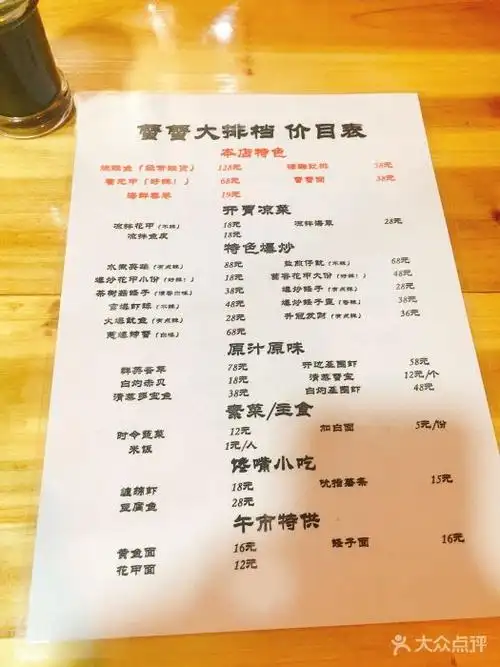 蟹蟹大排档 价目表
本店特色
128元 38元
蟹花甲（好辣！） 68元 蟹蟹面 38元
海鲜 19元
开胃凉菜
凉拌花甲（不辣） 18元 凉拌海蜇 28元
凉拌鱼皮 18元
特色爆炒
水煮（有点辣） 88元 盐煎仔鱿（不辣） 68元
爆炒花甲小份（好辣！） 18元 酱香花甲大份（好辣！） 48元
茶树菇蛏子 48元 爆炒蛏子（有点辣） 28元
宫爆虾球（不辣） 48元 爆炒蛏子皇（香辣） 38元
火爆鱿鱼（有点辣） 28元 升冠发财（有点辣） 36元
葱爆辣蟹（白味） 68元
原汁原味
群英荟萃 78元 开边基围虾 58元
白灼赤贝 18元 清蒸蟹宝 12元/个
清蒸多宝鱼 38元 白灼基围虾 48元
素菜/主食
时令蔬菜 12元 加白面 5元/份
米饭 1元/人
馋嘴小吃
缠绵虾 18元 吮指薯条 15元
豆腐鱼 28元
午市特供
黄鱼面 16元 蛏子面 16元
花甲面 12元
大众点评